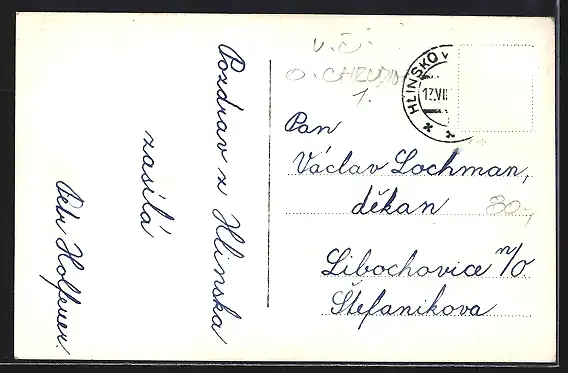 Pozdrav z Hlinska
zasílá
Petr
V.Č.
O. CHRUDIM
1.
HLINSKO V
17.VII
Pan
Václav Lochman,
děkan
80-,
Libochovice n/O
Štefanikova